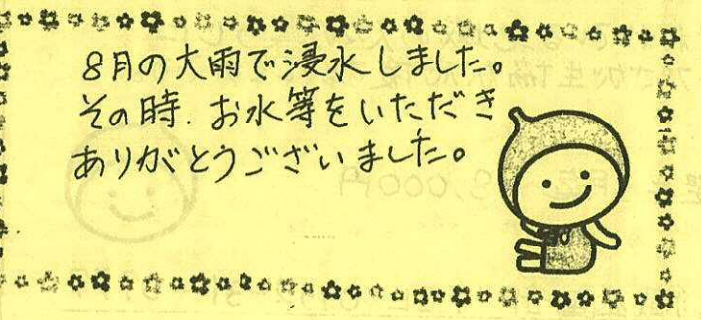 8月の大雨で浸水しました。
その時、お水等をいただき
ありがとうございました。